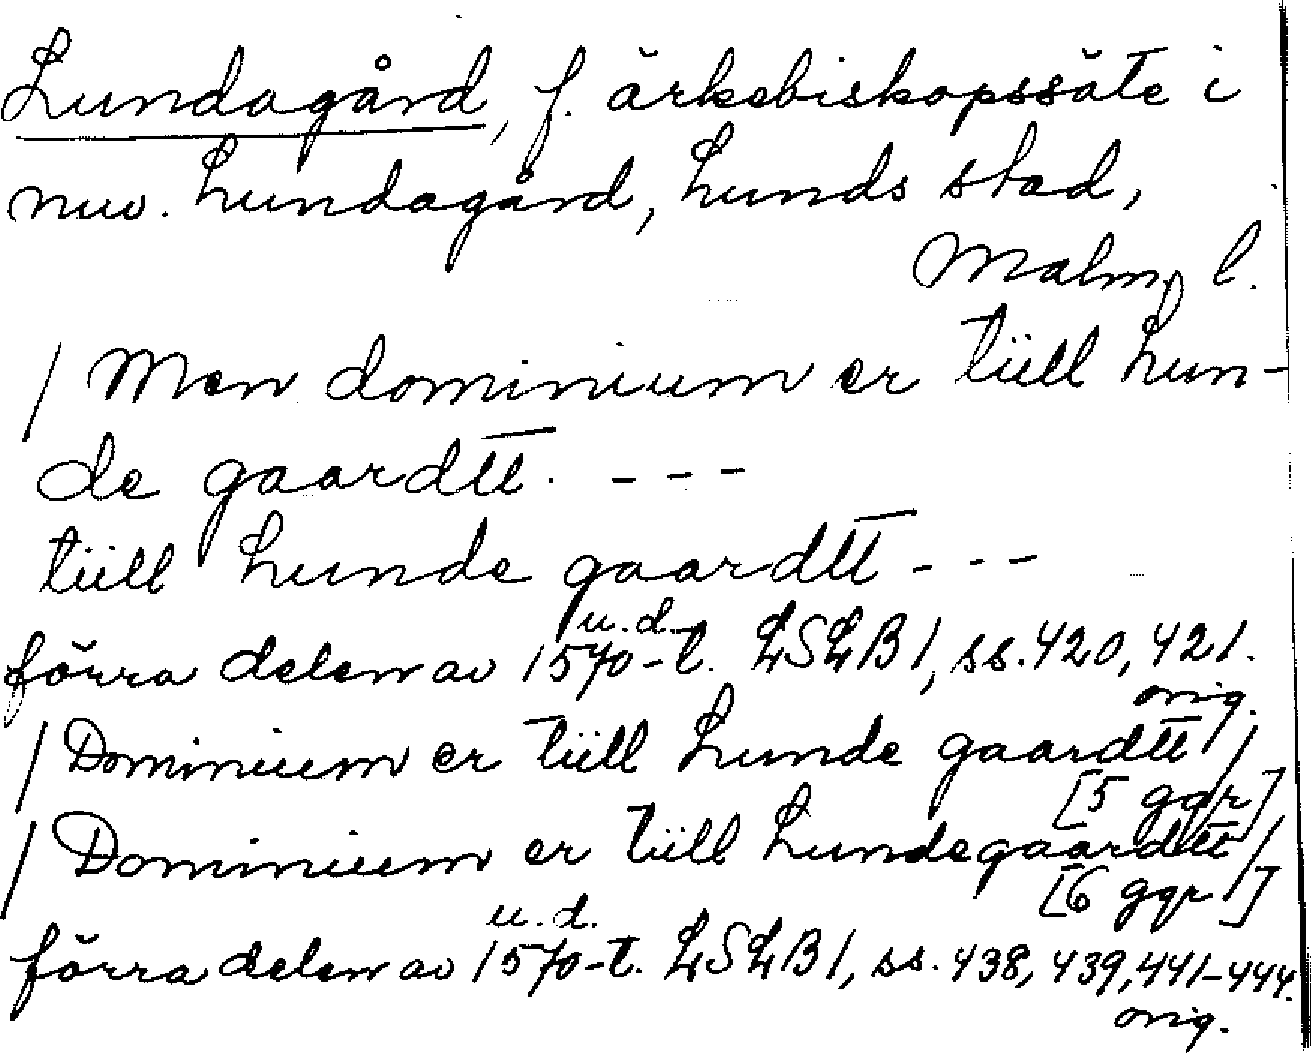 Lundagård, f. ärkebiskopssäte i
nuv. Lundagård, Lunds stad,
Malm. l.
/ Men dominium er tiill Lun-
de gaardtt. - - -
tiill Lunde gaardtt - - -
u.d.
förra delen av 1570-t. LSLB 1, ss. 420, 421.
orig.
/ Dominium er tiill Lunde gaardtt /
[5 ggr]
/ Dominium er tiill Lundegaardtt /
[6 ggr]
u.d.
förra delen av 1570-t. LSLB 1, ss. 438, 439, 441-444.
orig.